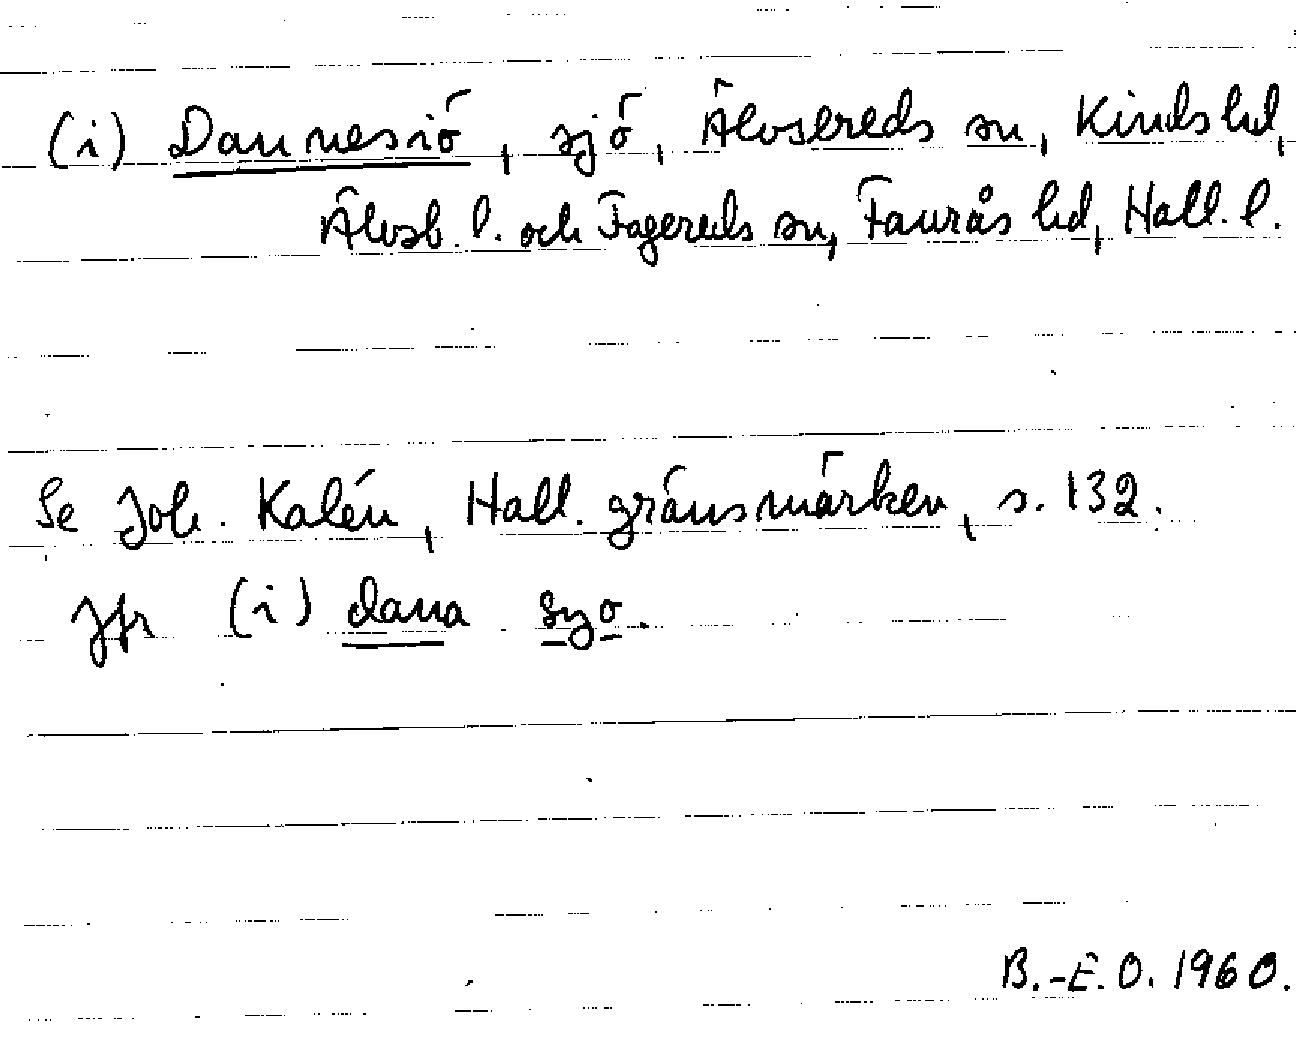 (i) Dannesiö, sjö, Älvsereds sn, Kinds hd,
Älvsb. l. och Fagereds sn, Faurås hd, Hall. l.
Se Joh. Kalén, Hall. gränsmärken, s. 132.
Jfr (i) dana syo.
B.-E.O. 1960.